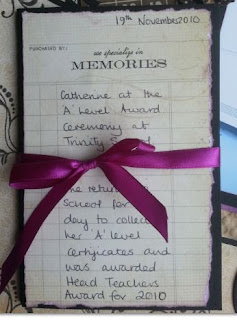 19th November 2010
PURCHASED BY:
we specialize in
MEMORIES
Catherine at the
'A' Level Award
Ceremony at
Trinity
return
School for
day to collect
her 'A' level
certificates and
was awarded
Head Teachers
Award for 2010